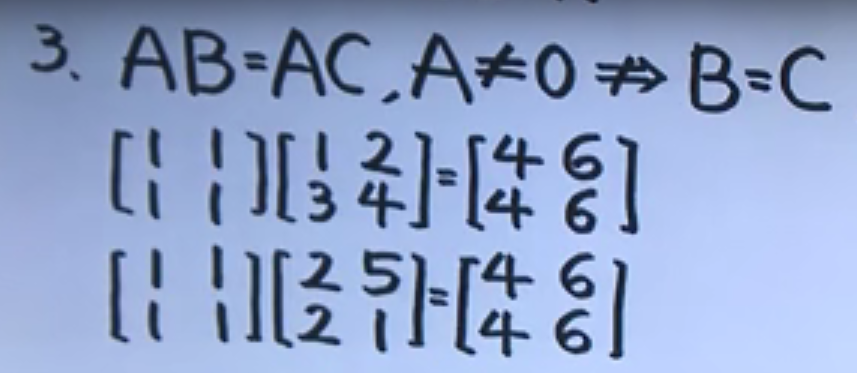 3. AB=AC, A≠0 ⇏ B=C
[1 1
1 1][1 2
3 4]=[4 6
4 6]
[1 1
1 1][2 5
2 1]=[4 6
4 6]